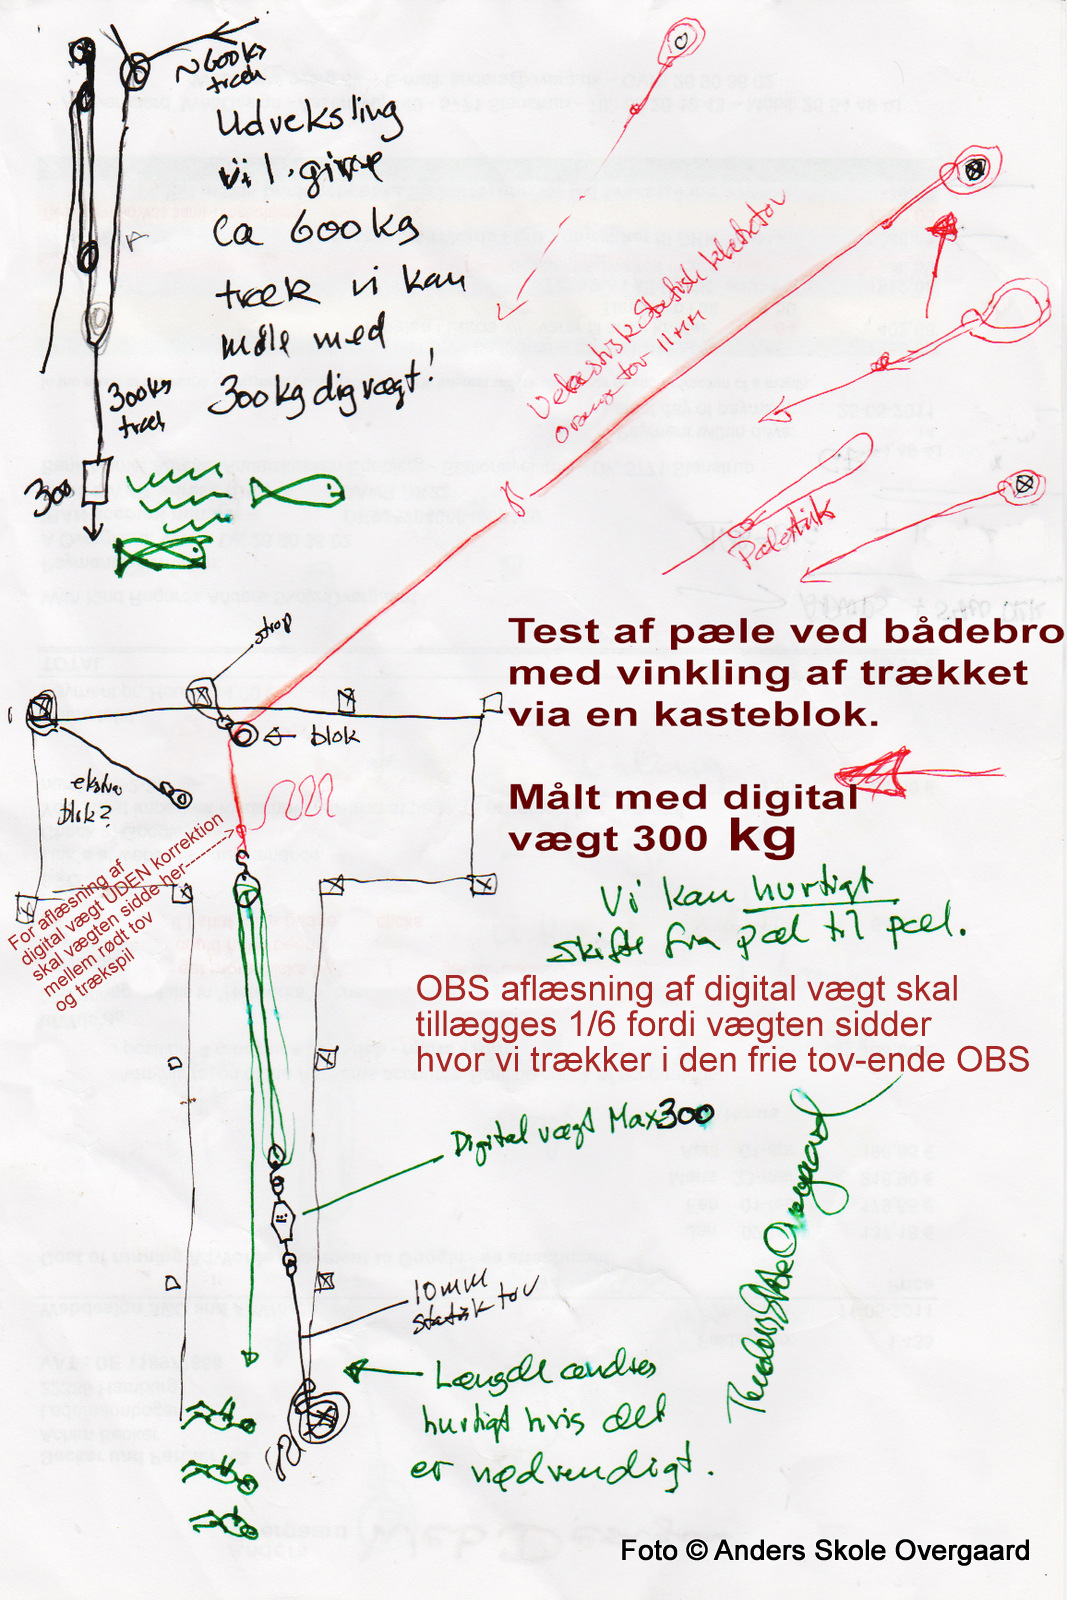 ~600kg
træk
Udveksling
vil give
ca 600kg
træk vi kan
måle med
300kg dig vægt!
300kg
træk
300
Statisk klatretov
Orange tov 11mm
Pælestik
Test af pæle ved bådebro
med vinkling af trækket
via en kasteblok.
strop
blok
ekstra
blok?
Målt med digital
vægt 300 kg
For aflæsning af
digital vægt UDEN korrektion
skal vægten sidde her------->
mellem rødt tov
og trækspil
Vi kan hurtigt
skifte fra pæl til pæl.
OBS aflæsning af digital vægt skal
tillægges 1/6 fordi vægten sidder
hvor vi trækker i den frie tov-ende OBS
Digital vægt Max 300
Anders Skole Overgaard
10mm
statisk tov
Længde ændres
hurtigt hvis det
er nødvendigt.
Foto © Anders Skole Overgaard